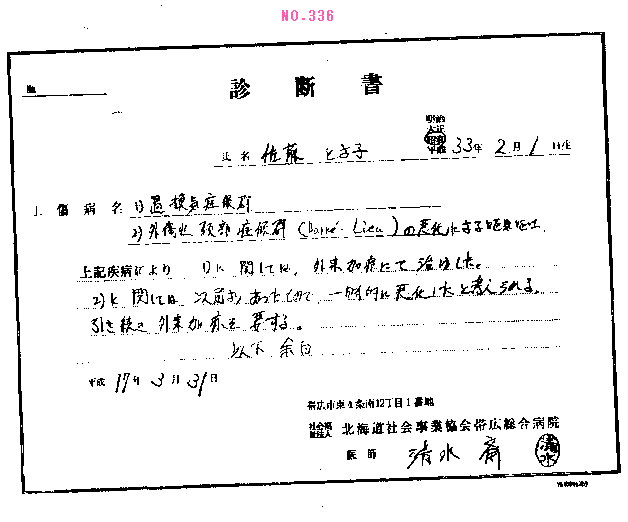 NO.336
診断書
明治
大正
昭和
平成
氏名 佐藤 とき子 33年2月1日生
1. 傷病名 1)過換気症候群
2)外傷性頚部症候群(Barré-Lieu)の悪化による
上記疾病により 1)に関しては、外来加療にて治ゆした。
2)に関しては 一時的に悪化したと考えられる。
引き続き外来加療を要する。
以下余白
平成17年3月31日
帯広市東4条南12丁目1番地
社会福祉法人 北海道社会事業協会帯広総合病院
医師 清水
清水